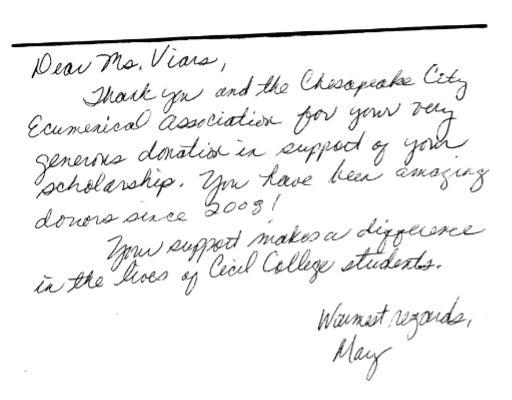 Dear Ms. Viars,
Thank you and the Chesapeake City
Ecumenical Association for your very
generous donation in support of your
scholarship. You have been amazing
donors since 2003!
Your support makes a difference
in the lives of Cecil College students.
Warmest regards,
Mary